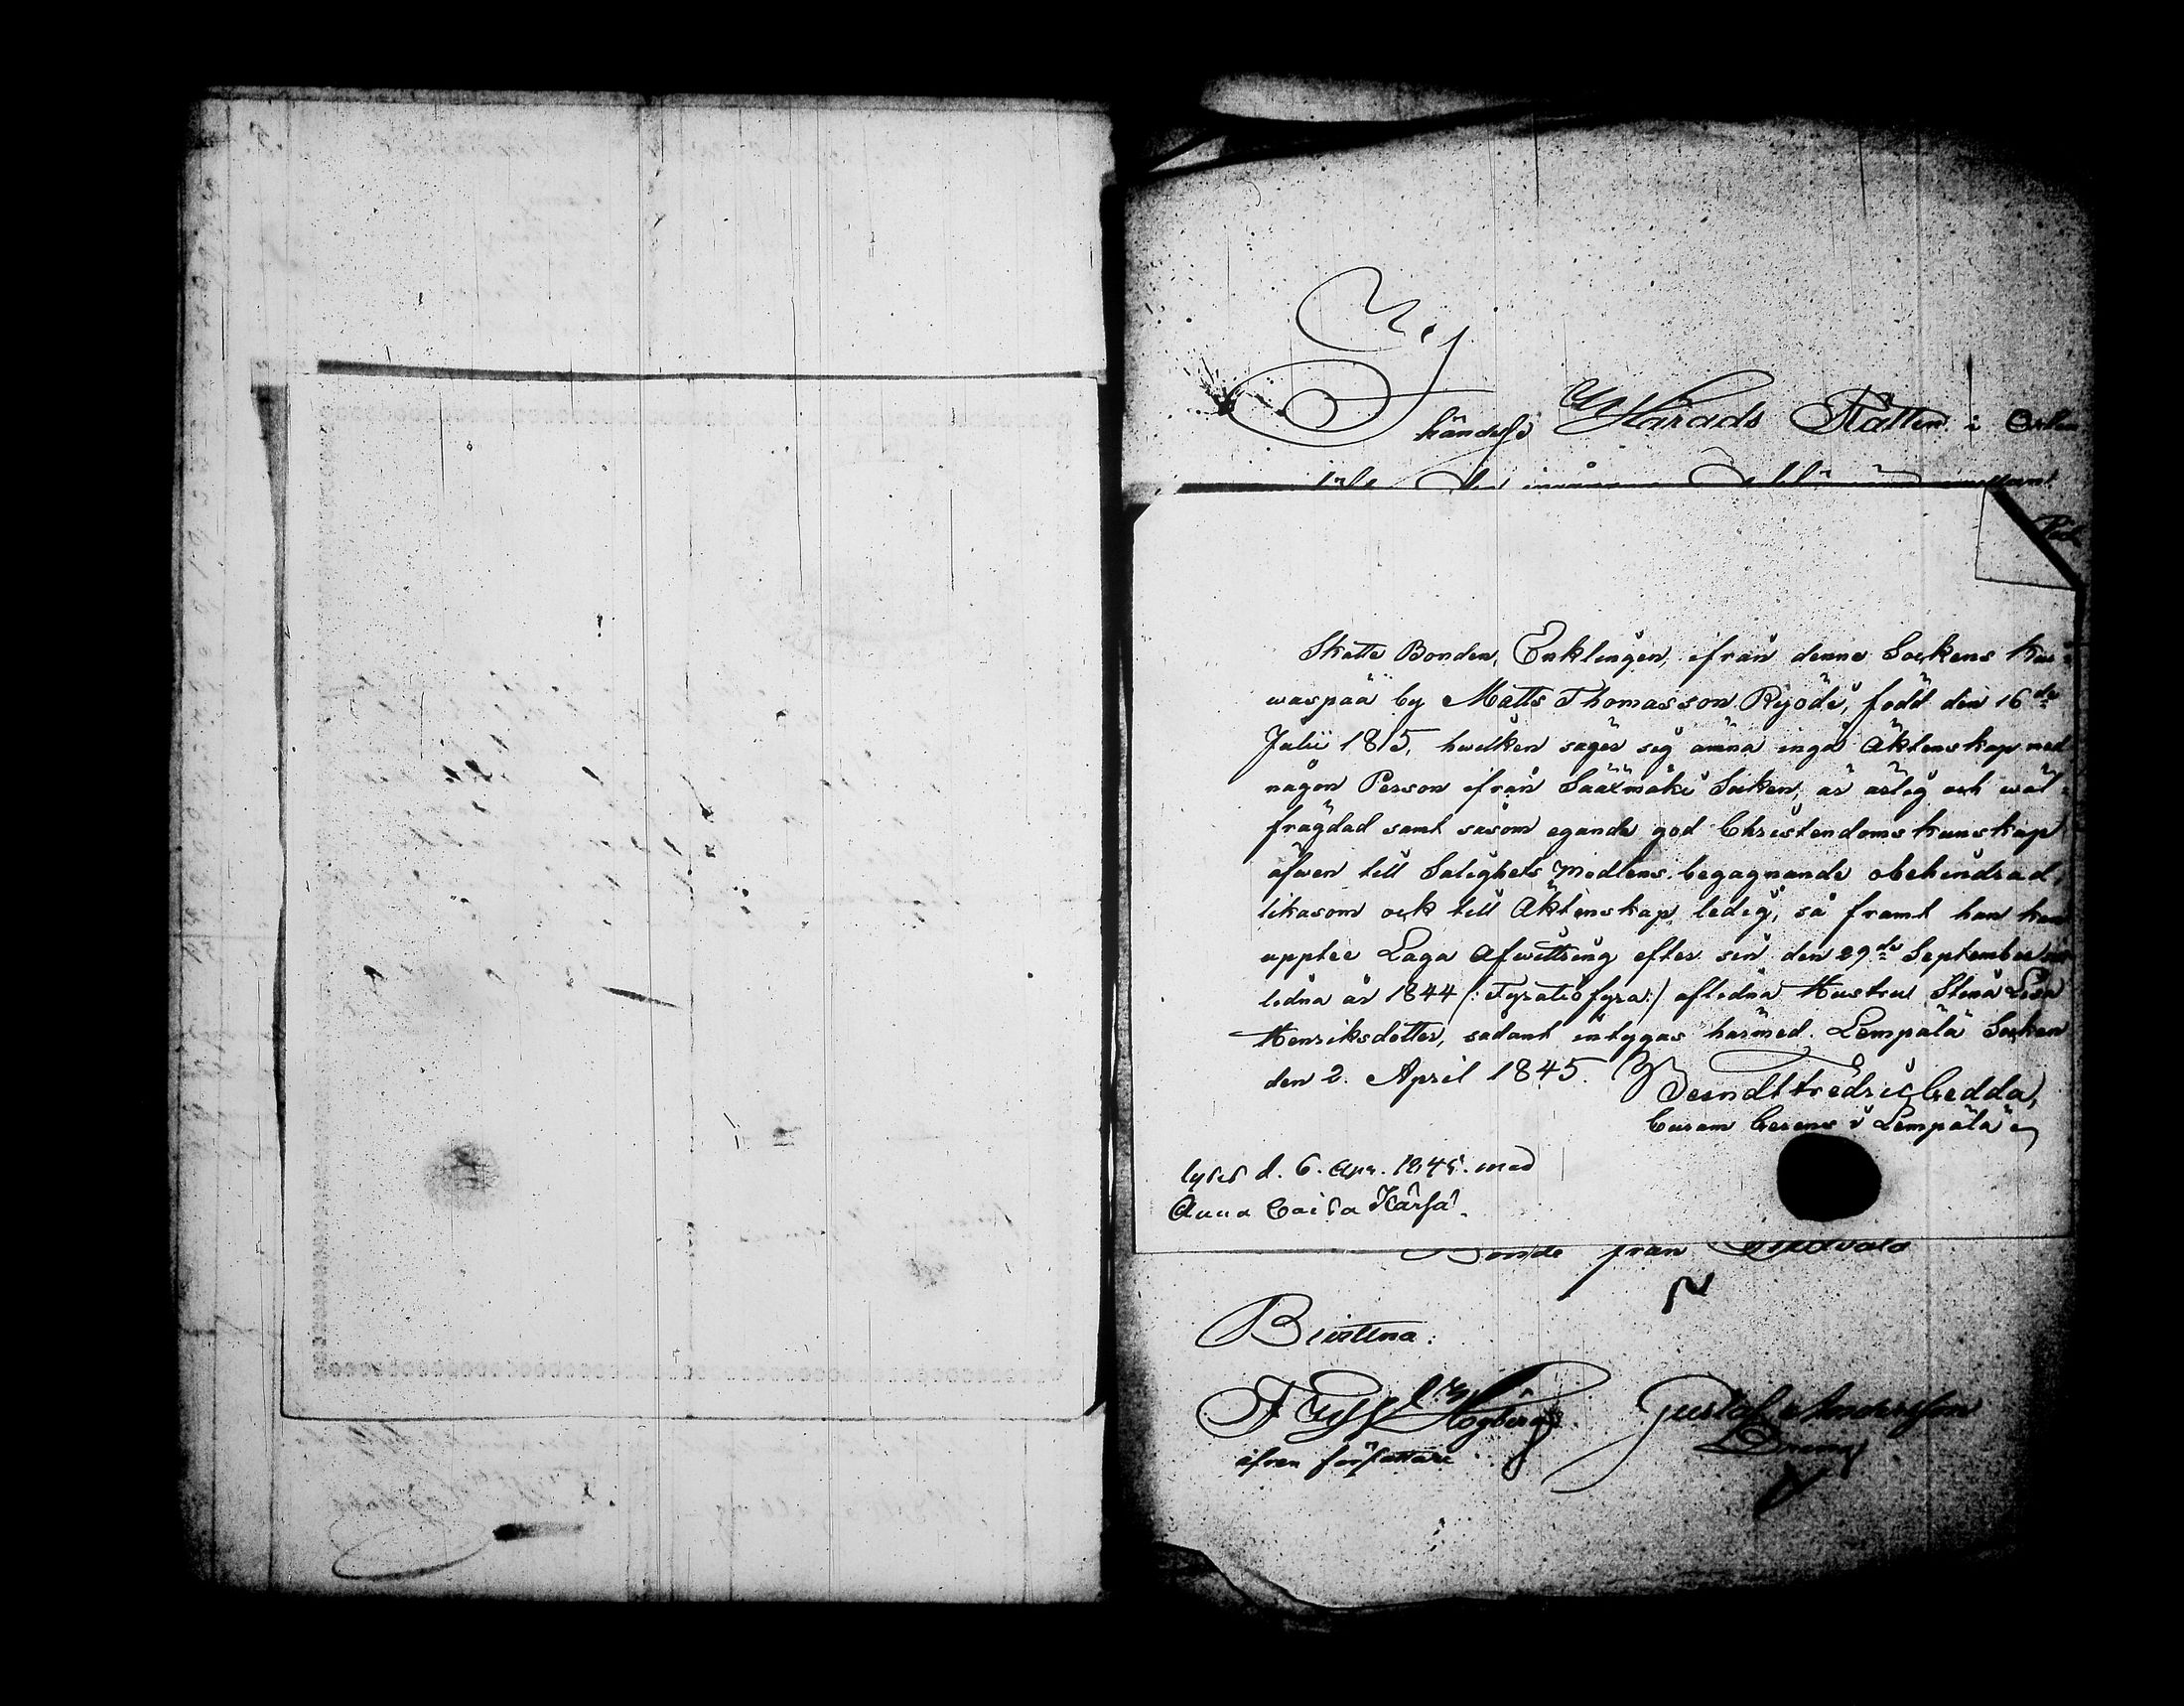 händelse Härads Rätten i
Skatte Bonden, Enklingen, ifrån denne Sockens Kui=
waspää by Matts Thomasson Ryödi, född den 16de
Julii 1815, hwilken säger sig ämna ingå Äktenskap med
någon Person ifrån Sääxmäki Socken, är ärlig och wäl=
frägdad samt såsom egande god Christendoms kunskap
äfwen till Salighets Medlens begagnande obehindrad,
likasom ock till Äktenskap ledig, så framt han kan
upptee Laga Afwittring efter sin den 29de September
ledna år 1844 /: Fyratiofyra :/ aflidna Hustru Stina Lisa
Henriksdotter, sådant intygas härmed. Lempälä Socken
den 2. April 1845. Berndt Fredric Gedda,
Curam Gerens i Lempälä
lyses d. 6. Apr. 1845. med
Anna Caisa Kärfä.
Bonde från
Bevittna:
Högberg Gustaf Andersson
äfven författare Dräng